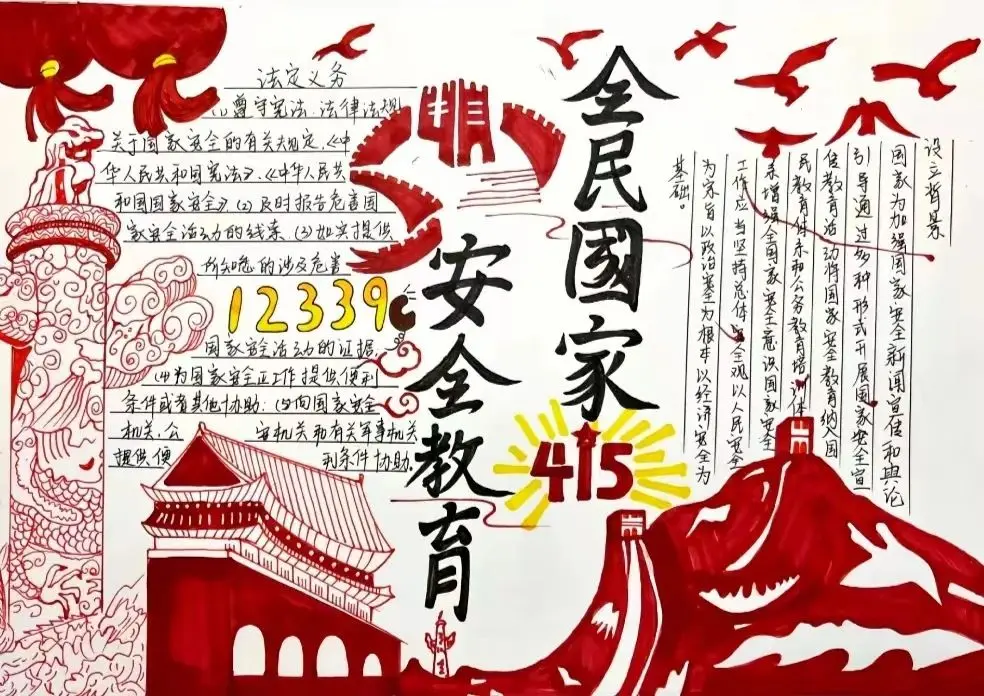 全民國家
安全教育
415
法定义务
(1)遵守宪法、法律法规
关于国家安全的有关规定,《中
华人民共和国宪法》、《中华人民共
和国国家安全》(2)及时报告危害国
家安全活动的线索(3)如实提供
所知晓的涉及危害
12339
国家安全活动的证据,
(4)为国家安全工作提供便利
条件或者其他协助:(5)向国家安全
机关、公 安机关和有关军事机关
提供便 利条件协助。
设立背景
国家为加强国家安全新闻宣传和舆论
引导通过多种形式开展国家安全宣
传教育活动将国家安全教育纳入国
民教育体系和公务教育培训体
系增强全国家安全意识国家安全
工作应当坚持总体 安全观以人民安全
为宗旨以政治安全为根本以经济安全为
基础。